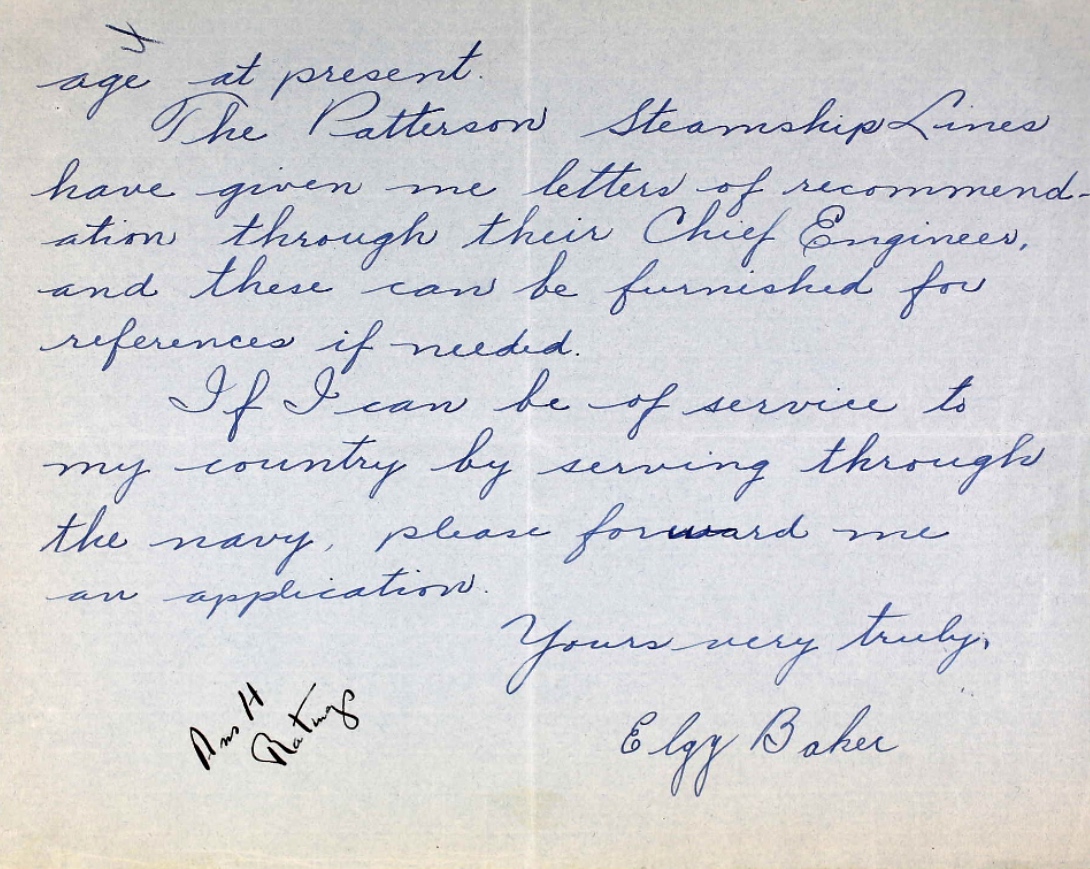 age at present.
The Patterson Steamship Lines
have given me letters of recommend-
ation through their Chief Engineer,
and these can be furnished for
references if needed.
If I can be of service to
my country by serving through
the navy, please forward me
an application.
Yours very truly,
Elgy Baker
Ans H
Ratings